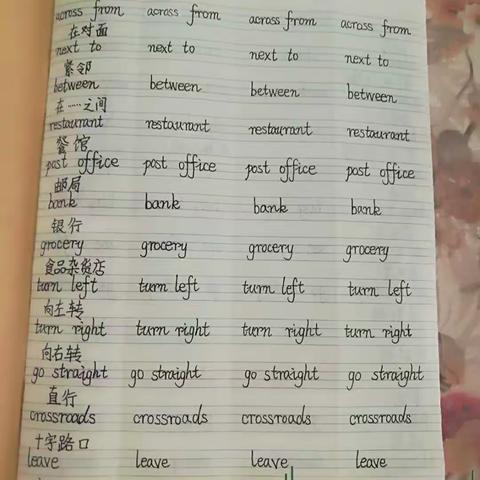 across from across from across from across from
在对面
next to next to next to next to
紧邻
between between between between
在……之间
restaurant restaurant restaurant restaurant
餐馆
post office post office post office post office
邮局
bank bank bank bank
银行
grocery grocery grocery grocery
食品杂货店
turn left turn left turn left turn left
向左转
turn right turn right turn right turn right
向右转
go straight go straight go straight go straight
直行
crossroads crossroads crossroads crossroads
十字路口
leave leave leave leave